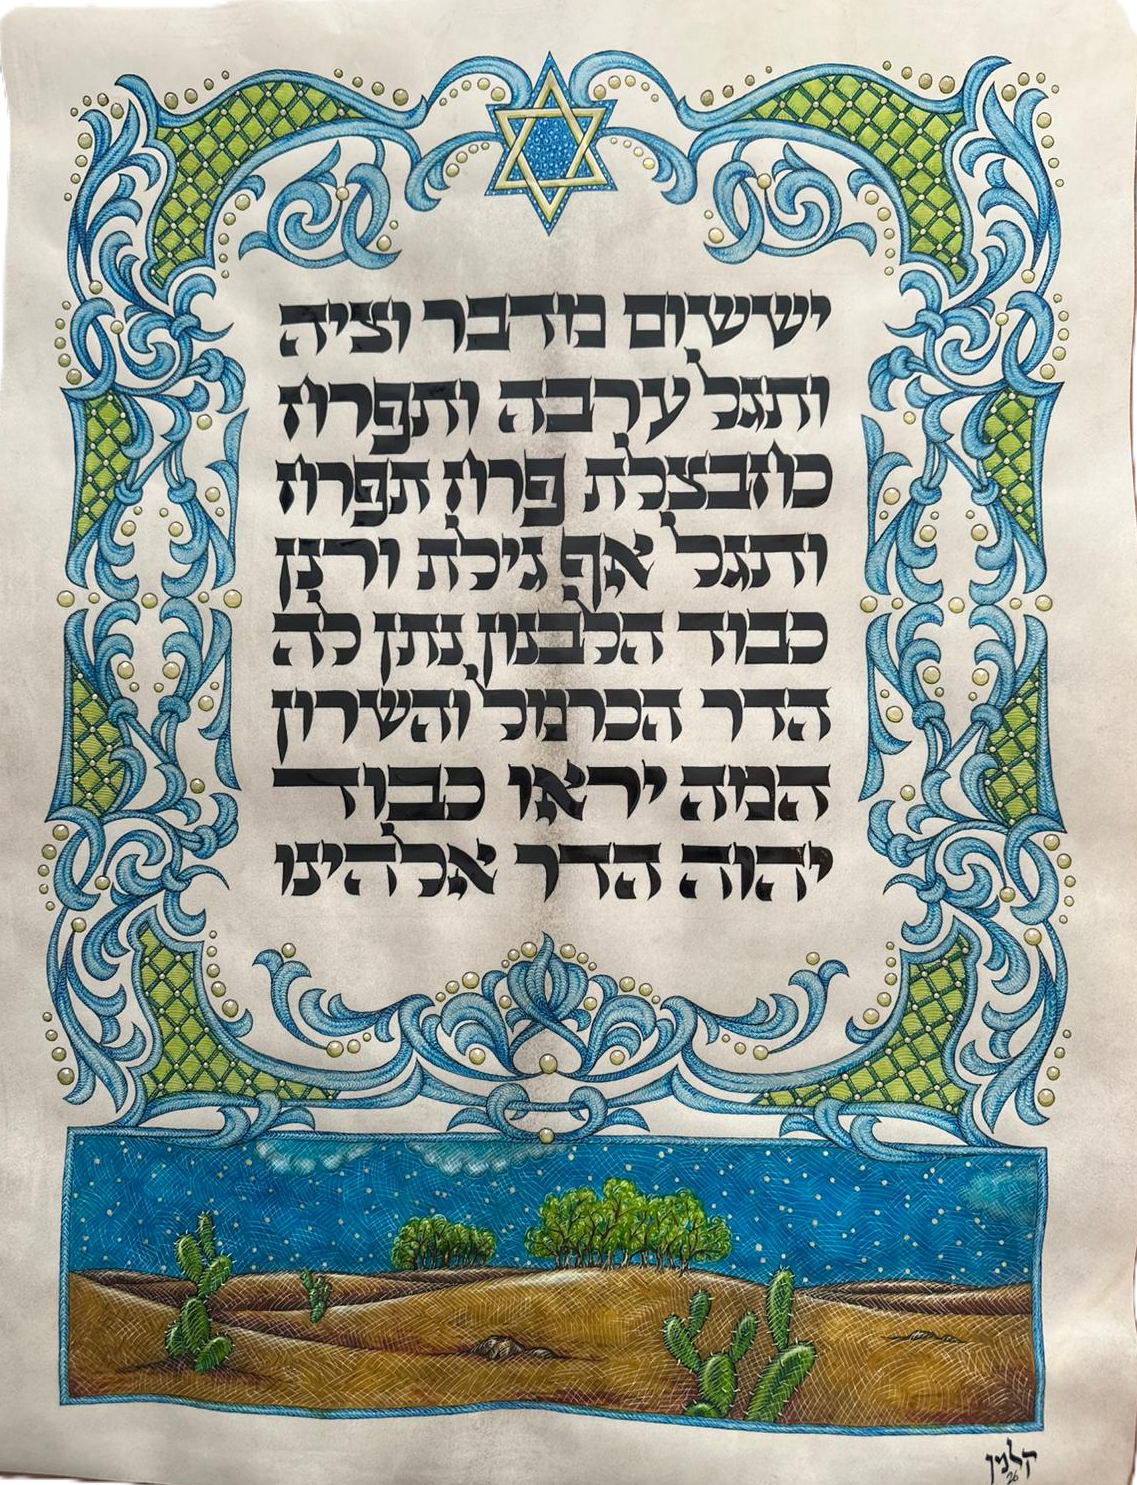 יששום מדבר וציה
ותגל ערבה ותפרח
כחבצלת פרח תפרח
ותגל אף גילת ורנן
כבוד הלבנון נתן לה
הדר הכרמל והשרון
המה יראו כבוד
יהוה הדר אלהינו
קלמן
26